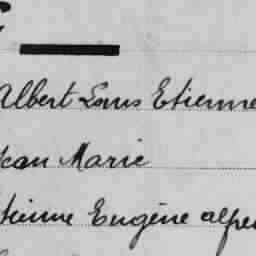 Albert Louis Etienne
Jean Marie
Etienne Eugène alfred